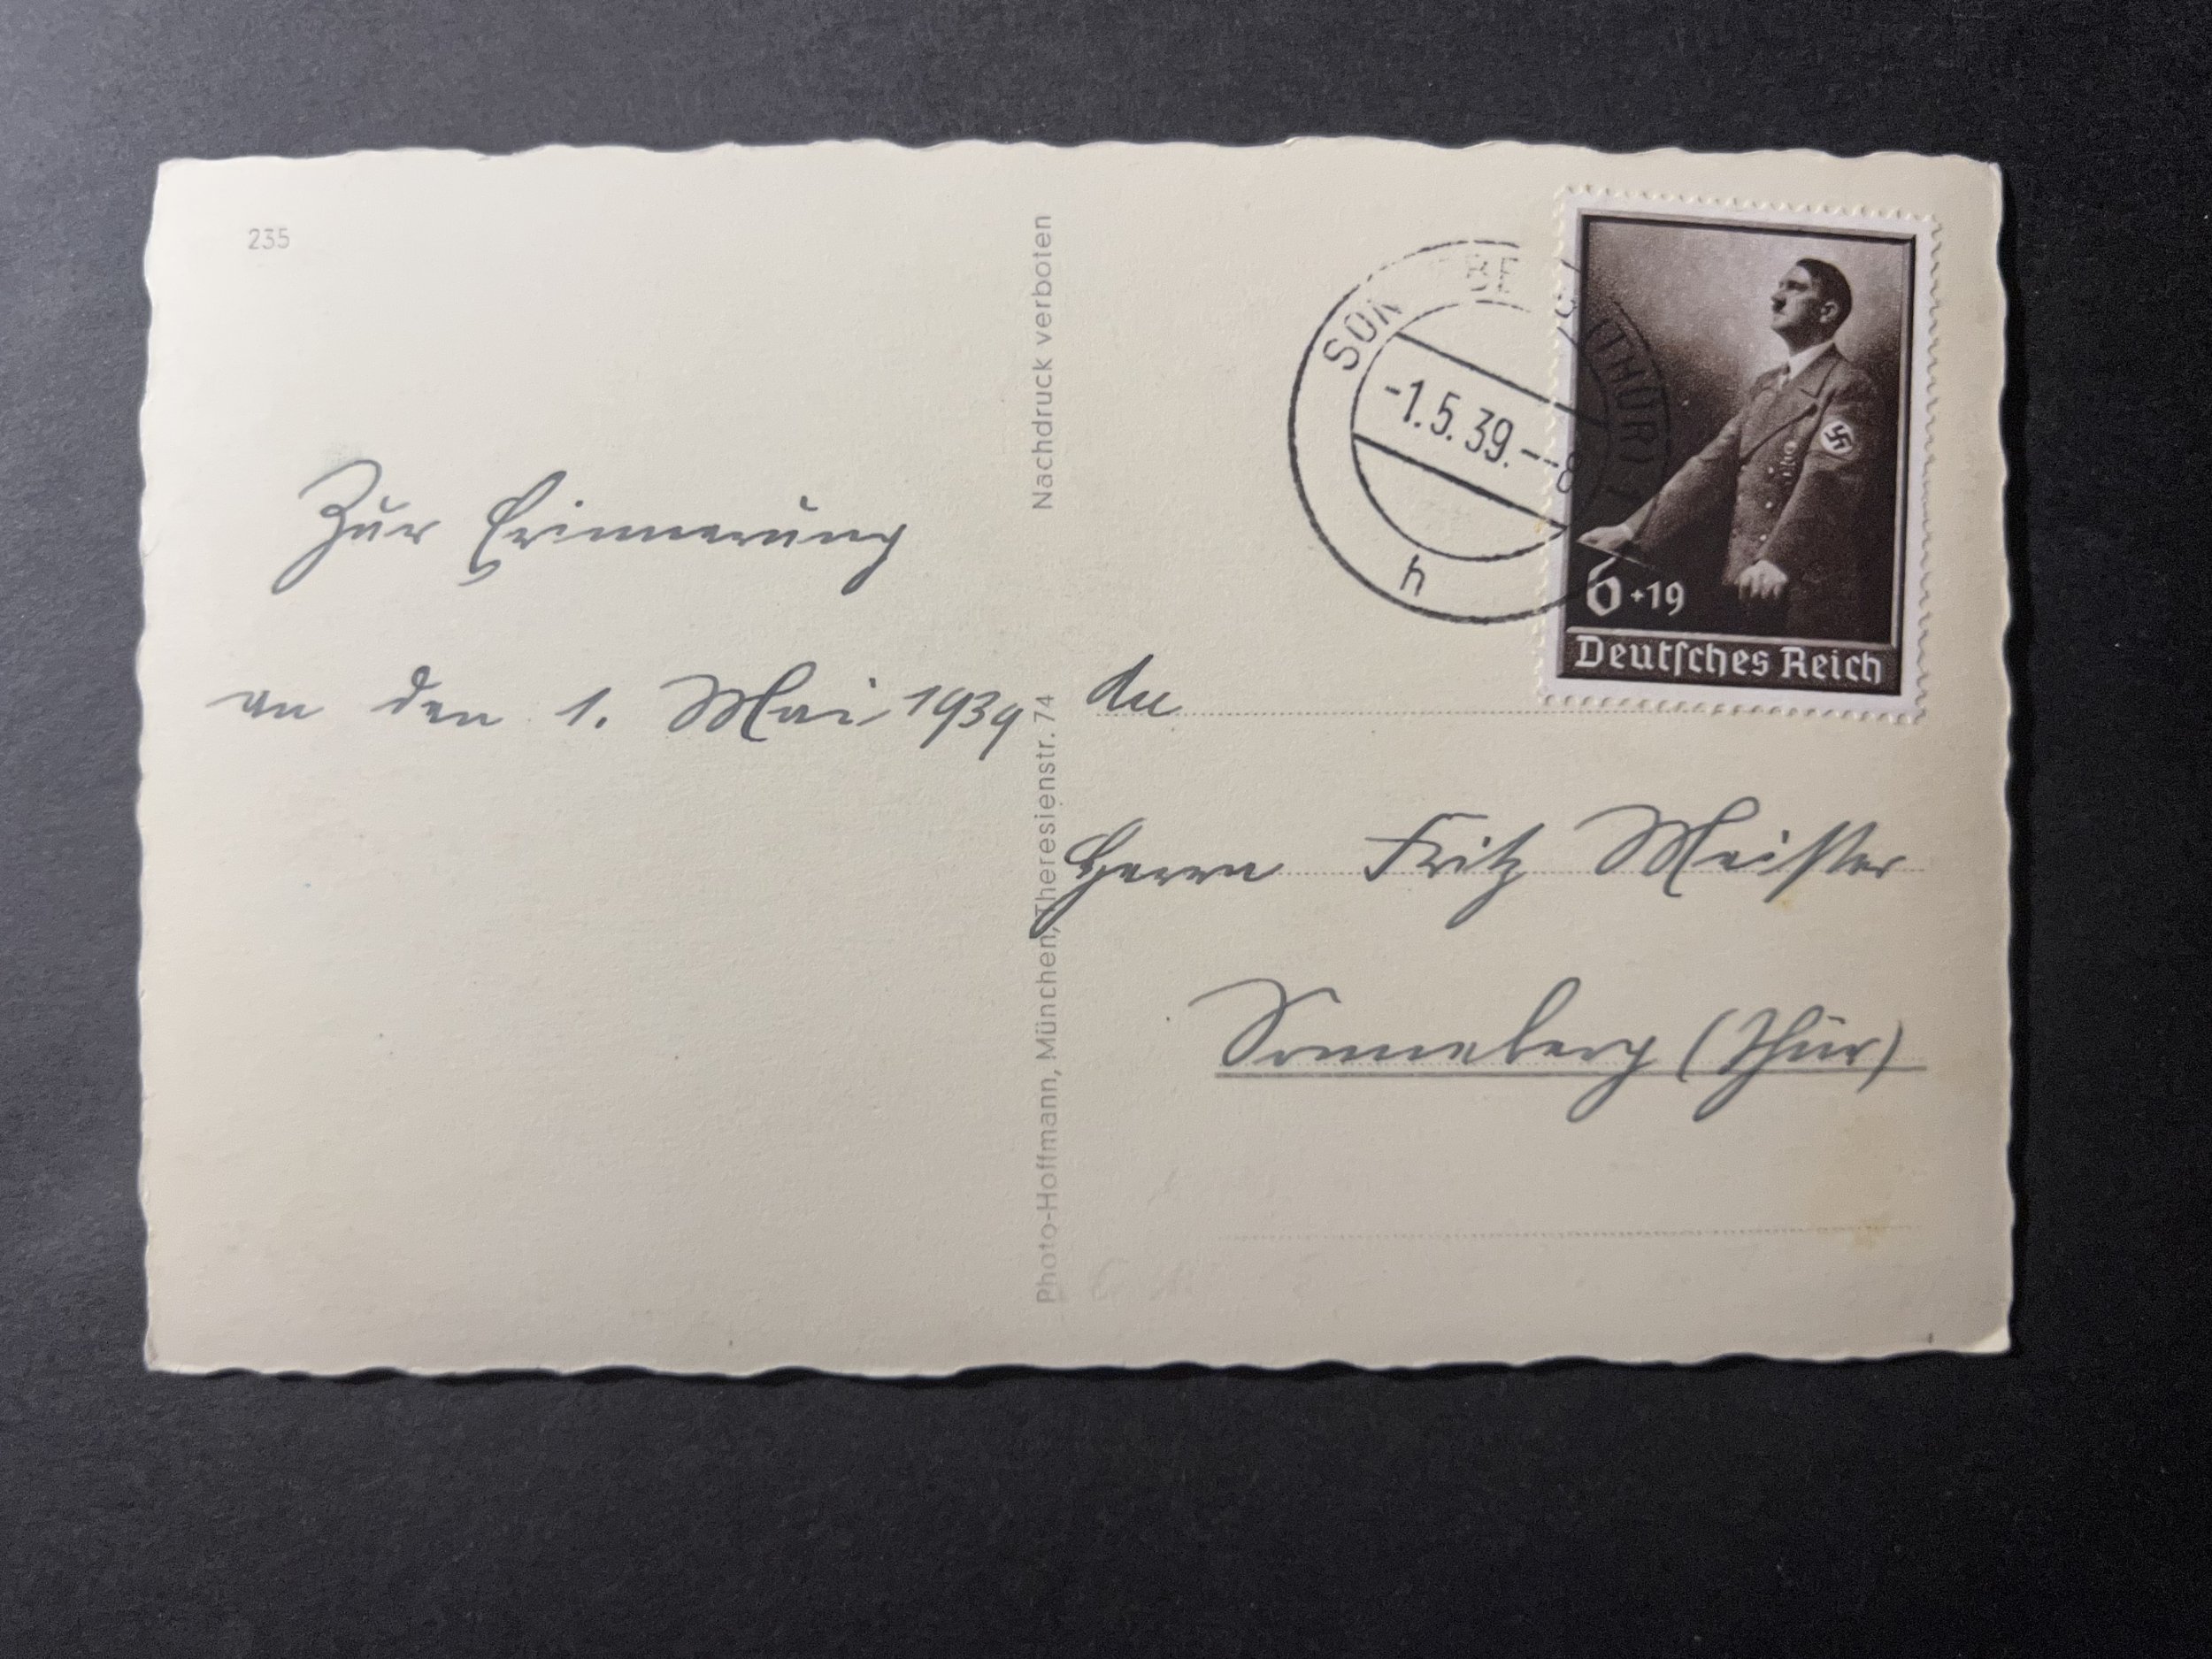 235
Nachdruck verboten
Photo-Hoffmann, München, Theresienstr. 74
Zur Erinnerung
an den 1. Mai 1939
SON BE G (THÜR)
-1.5.39.--8
h
6+19
Deutſches Reich
An
Herrn Fritz Meister
Sonneberg (Thür)